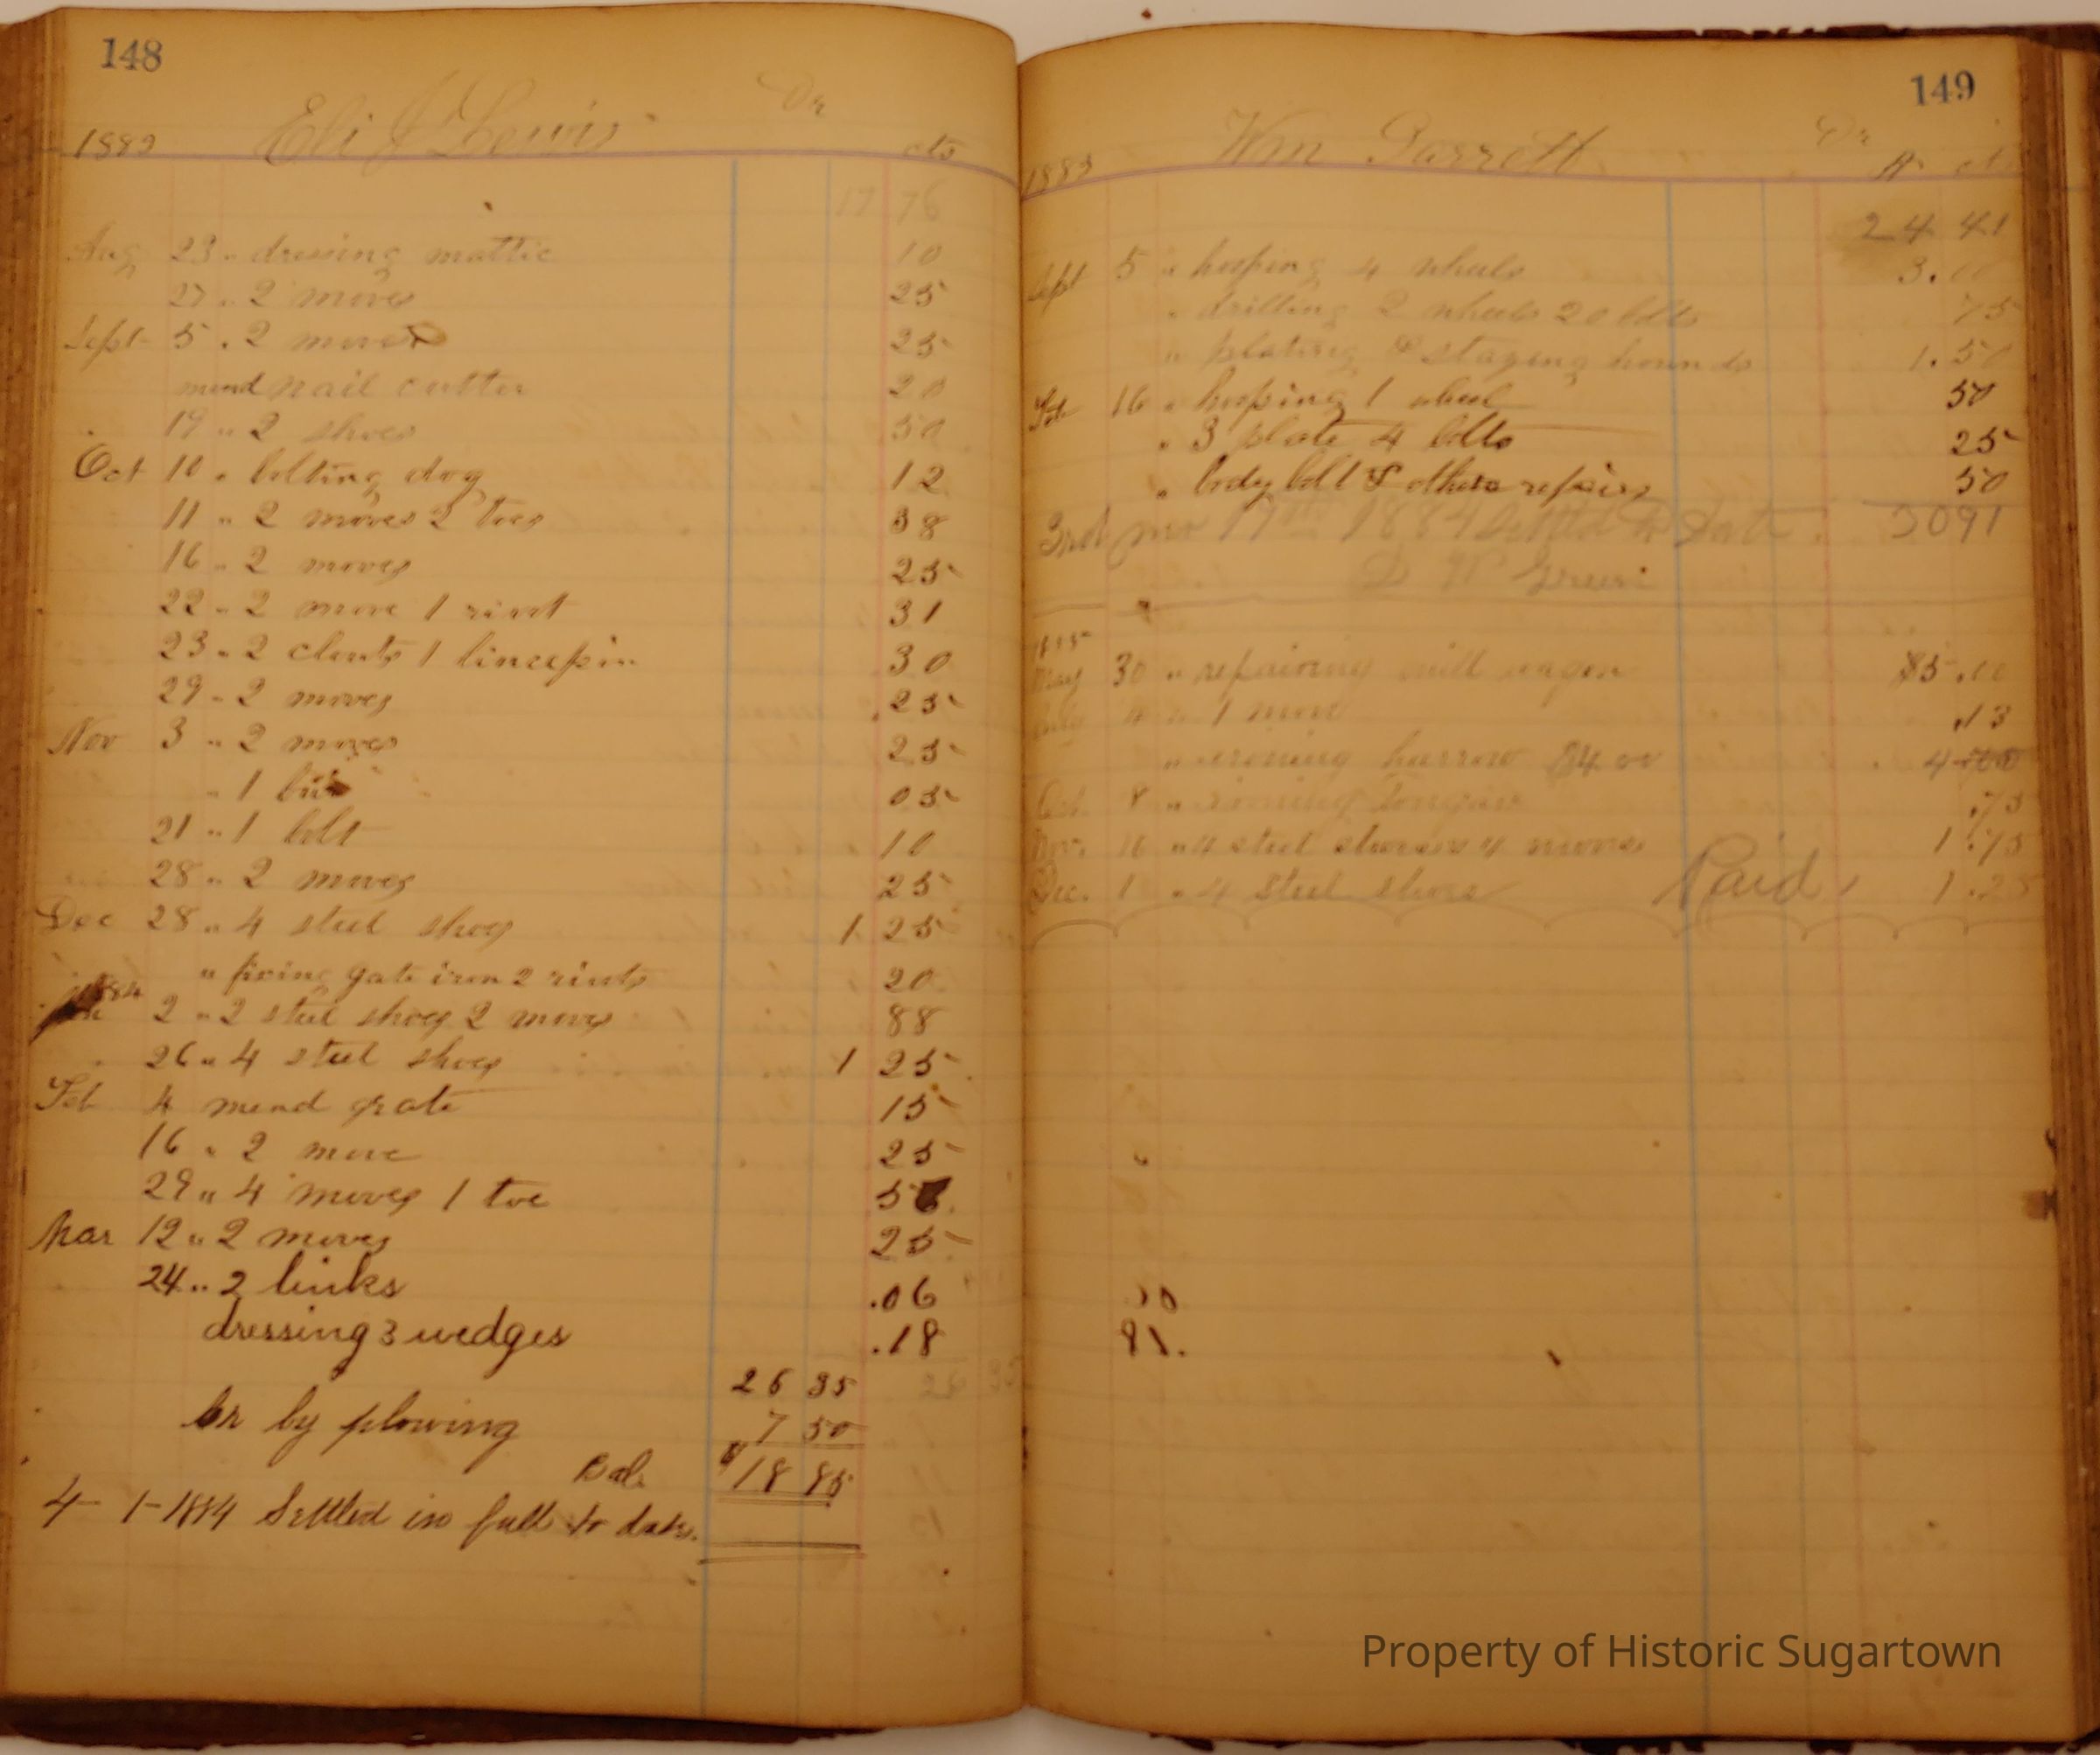 148
1883 Eli J Lewis Dr cts
17 76
Aug 23 " dressing mattic 10
27 " 2 moves 25
Sept 5 " 2 moves 25
mend nail cutter 20
19 " 2 shoes 50
Oct 10 " bolting dog 12
11 " 2 moves 2 toes 38
16 " 2 moves 25
22 " 2 move 1 rivet 31
23 " 2 clouts 1 lincepin 30
29 " 2 moves 25
Nov 3 " 2 moves 25
" 1 05
21 " 1 bolt 10
28 " 2 moves 25
Dec 28 " 4 steel shoes 1 25
" fixing gate iron 2 rivets 20
1884
2 " 2 steel shoes 2 moves 88
26 " 4 steel shoes 1 25
Feb 4 mend grate 15
16 " 2 move 25
29 " 4 moves 1 toe 56
Mar 12 " 2 moves 25
24 " 2 links .06
dressing 3 wedges .18
26 35
Cr by plowing 7 50
Bal. $18 85
4-1-1884 Settled in full to date.
149
1883 Wm Garrett Dr
24 41
Sept 5 " hooping 4 wheels 3.00
" drilling 2 wheels 20 bolts 75
" plating & staying hounds 1.50
16 " hooping 1 wheel 50
" 3 plate 4 bolts 25
" body bolt & other repairs 50
3rd mo 17th 1884 Settled to Date. 3091
1885
May 30 " repairing mill wagon $5.00
July 4 " 1 move .13
" ironing harrow $4 00 4 00
Oct. 8 " ironing Tongue .75
Nov. 16 " 4 steel shoes 4 moves 1.75
Dec. 1 " 4 steel shoes Paid, 1.25
Property of Historic Sugartown